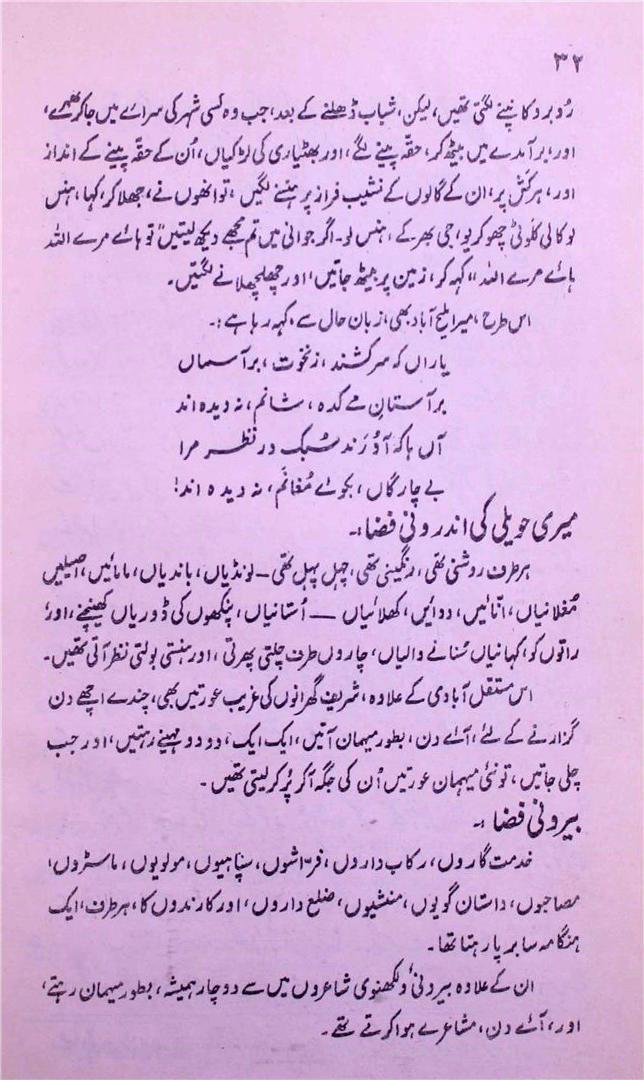 ۳۲
رُو برد کانپنے لگتی تھیں، لیکن، شباب ڈھلنے کے بعد، جب وہ کسی شہر کی سرائے میں جا کر ٹھہرے،
اور، برآمدے میں بیٹھ کر، حقّہ پینے لگے، اور بھٹیاری کی لڑکیاں، اُن کے حقّہ پینے کے انداز
اور، ہر کَش پر، ان کے گالوں کے نشیب فراز پر ہنسنے لگیں، تو انھوں نے، جھلا کر، کہا، ہنس
لو کالی کلوٹی چھوکریو، جی بھر کے، ہنس لو۔ اگر جوانی میں تم مجھے دیکھ لیتیں" تو ہائے مرے اللہ
ہائے مرے اللہ" کہہ کر، زمین پر بیٹھ جاتیں، اور چھلچھلانے لگتیں۔
اس طرح، میرا ملیح آباد بھی، زبان حال سے، کہہ رہا ہے:۔
یاراں کہ سر کشند، ز نخوت، بر آسماں
بر آستانِ مے کدہ، شانم، نہ دیدہ اند
آں ہا کہ آوُرَند سُبک در نظر مرا
بے چارگاں، بجوئے مُغانَم، نہ دیدہ اند!
میری حویلی کی اندرونی فضا:۔
ہر طرف روشنی تھی، رنگینی تھی، چہل پہل تھی — لونڈیاں، باندیاں، مامائیں، اصیلیں
مُغلانیاں، انّائیں، دوائیں، کھلائیاں — اُستانیاں، پنکھوں کی ڈوریاں کھینچنے، اور،
راتوں کو، کہانیاں سُنانے والیاں، چاروں طرف چلتی پھرتی، اور ہنستی بولتی نظر آتی تھیں۔
اس مستقل آبادی کے علاوہ، شریف گھرانوں کی غریب عورتیں بھی، چندے اچھے دن
گزارنے کے لئے، آئے دن، بطورِ میہمان آتیں، ایک ایک، دو دو مہینے رہتیں، اور جب
چلی جاتیں، تو نئی میہمان عورتیں اُن کی جگہ آکر پُر کر لیتی تھیں۔
بیرونی فضا:۔
خدمت گاروں، رکاب داروں، فرّاشوں، سپاہیوں، مولویوں، ماسٹروں،
مصاحبوں، داستان گویوں، منشیوں، ضلع داروں، اور کارندوں کا، ہر طرف، ایک
ہنگامہ سا برپا رہتا تھا۔
ان کے علاوہ بیرونی و لکھنوی شاعروں میں سے دو چار ہمیشہ، بطور میہمان رہتے،
اور، آئے دن، مشاعرے ہوا کرتے تھے۔